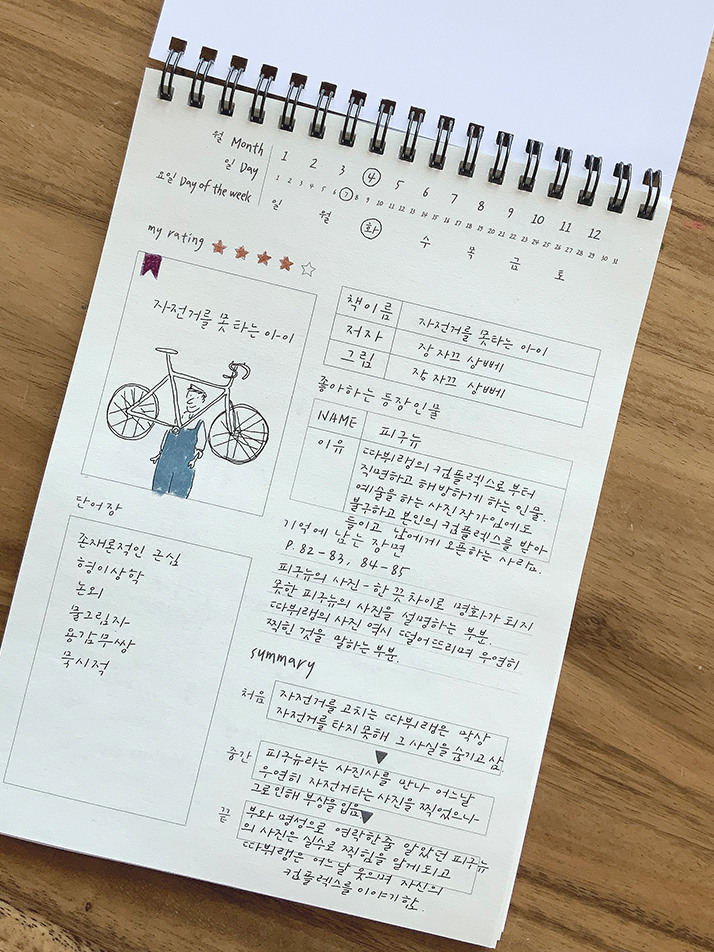 월 Month 1 2 3 4 5 6 7 8 9 10 11 12
일 Day 1 2 3 4 5 6 7 8 9 10 11 12 13 14 15 16 17 18 19 20 21 22 23 24 25 26 27 28 29 30 31
요일 Day of the week 일 월 화 수 목 금 토
my rating
자전거를 못 타는 아이
책이름 자전거를 못 타는 아이
저자 장 자끄 상뻬
그림 장 자끄 상뻬
좋아하는 등장인물
NAME 피구뉴
이유 따뷔랭의 컴플렉스로부터
직면하고 해방하게 하는 인물.
예술을 하는 사진작가임에도
불구하고 본인의 컴플렉스를 받아
들이고 남에게 오픈하는 사람.
기억에 남는 장면
P. 82-83, 84-85
피구뉴의 사진 - 한 끗 차이로 명화가 되지
못한 피구뉴의 사진을 설명하는 부분.
따뷔랭의 사진 역시 떨어뜨리며 우연히
찍힌 것을 말하는 부분.
단어장
존재론적인 근심
형이상학
논외
물그림자
용감무쌍
묵시적
summary
처음 자전거를 고치는 따뷔랭은 막상
자전거를 타지 못해 그 사실을 숨기고 삶.
중간 피구뉴라는 사진사를 만나 어느날
우연히 자전거타는 사진을 찍었으나
그로인해 부상을 입음
끝 부와 명성으로 연락한줄 알았던 피구뉴
의 사진은 실수로 찍힘을 알게되고
따뷔랭은 어느날 웃으며 자신의
컴플렉스를 이야기함.